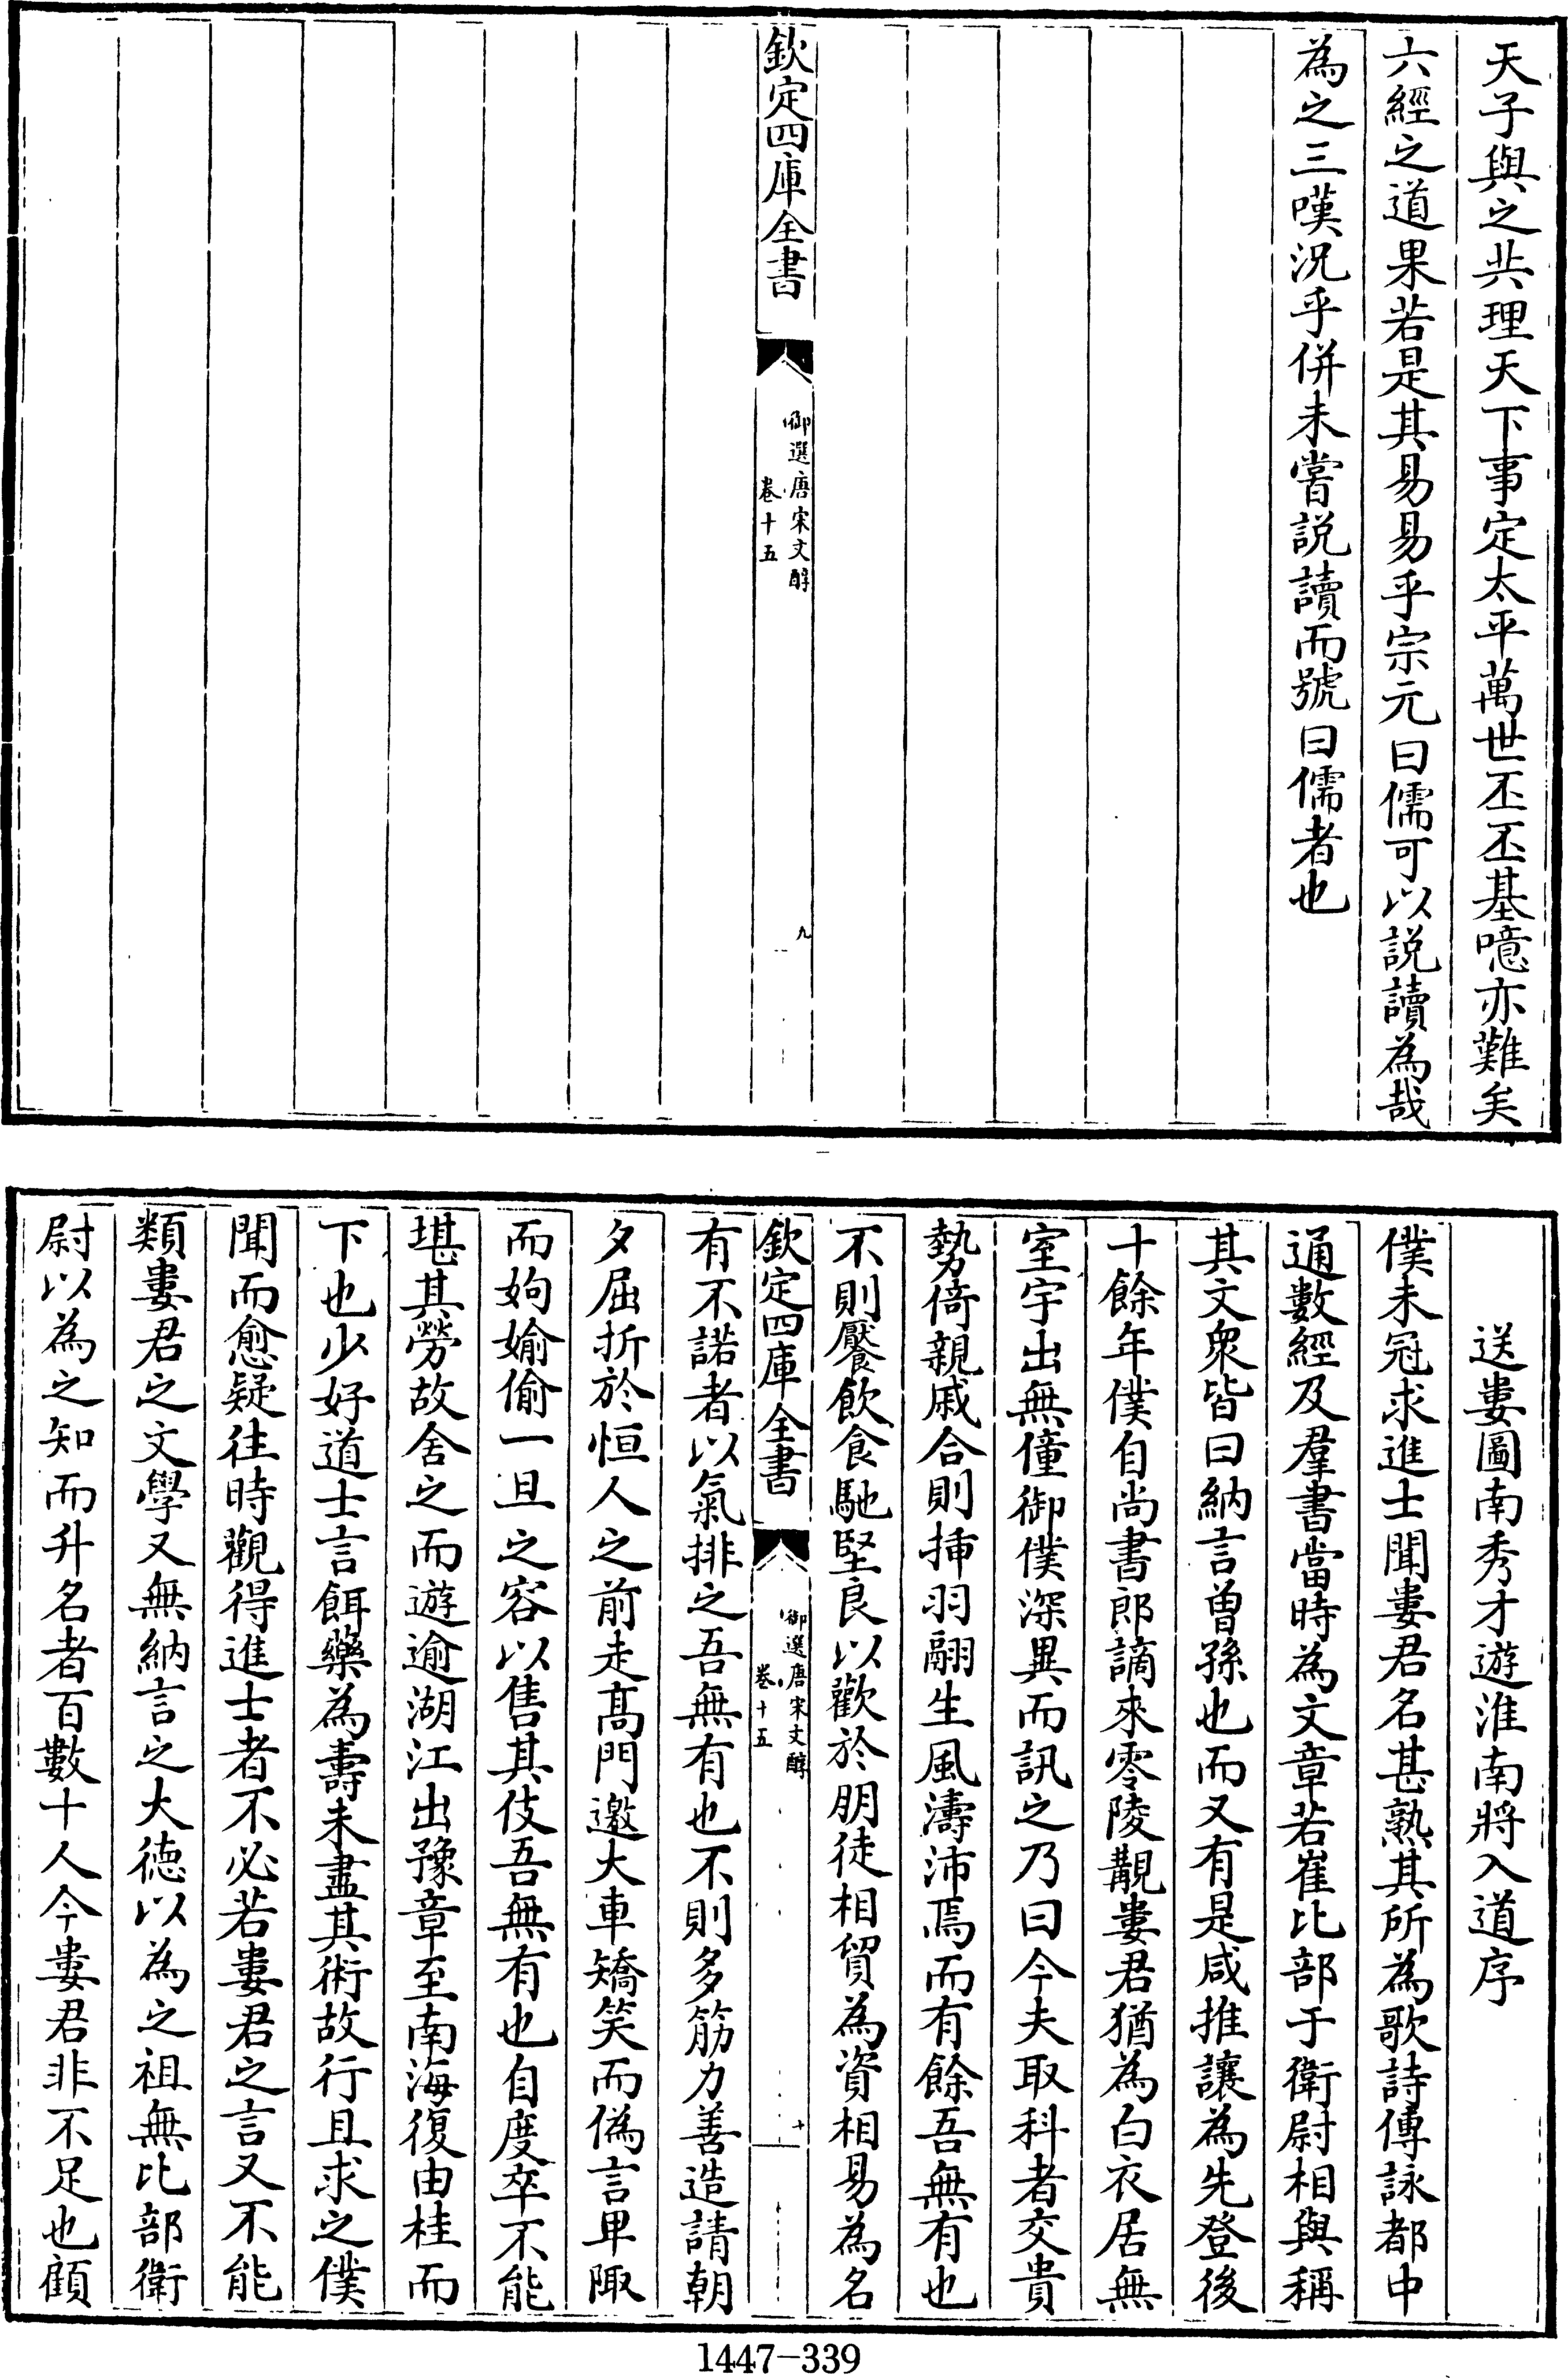 天子與之共理天下事定太平萬世丕丕基噫亦難矣
六經之道果若是其易易乎宗元曰儒可以説讀為哉
為之三嘆況乎併未嘗説讀而號曰儒者也
欽定四庫全書
御選唐宋文醇
卷十五
九
送婁圖南秀才遊淮南將入道序
僕未冠求進士聞婁君名甚熟其所為歌詩傳詠都中
通數經及羣書當時為文章若崔比部于衛尉相與稱
其文衆皆曰納言曾孫也而又有是咸推讓為先登後
十餘年僕自尚書郎謫來零陵覯婁君猶為白衣居無
室宇出無僮御僕深異而訊之乃曰今夫取科者交貴
勢倚親戚合則插羽翮生風濤沛焉而有餘吾無有也
不則饜飲食馳堅良以歡於朋徒相貿為資相易為名
欽定四庫全書
御選唐宋文醇
卷十五
十
有不諾者以氣排之吾無有也不則多筋力善造請朝
夕屈折於恒人之前走髙門邀大車矯笑而偽言卑陬
而姁媮偷一旦之容以售其伎吾無有也自度卒不能
堪其勞故舍之而遊逾湖江出豫章至南海復由桂而
下也少好道士言餌藥為壽未盡其術故行且求之僕
聞而愈疑往時觀得進士者不必若婁君之言又不能
類婁君之文學又無納言之大徳以為之祖無比部衛
尉以為之知而升名者百數十人今婁君非不足也顧
1447-339